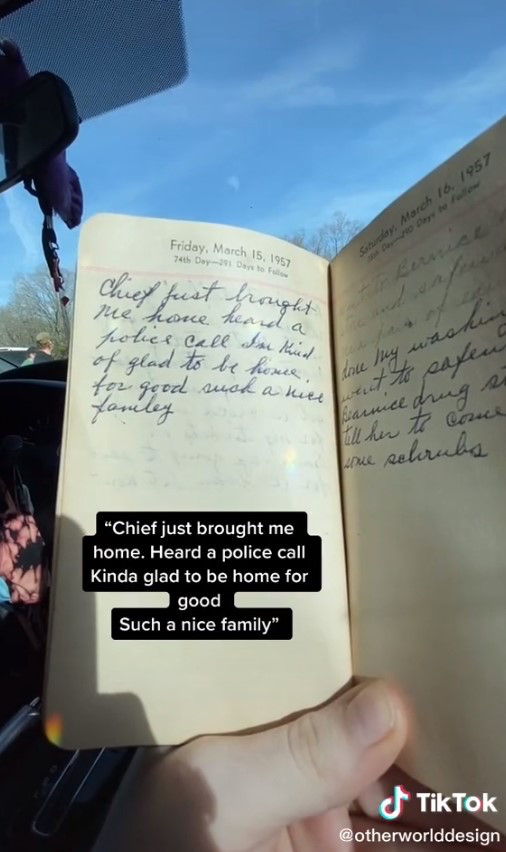 Friday, March 15, 1957
74th Day—291 Days to Follow
Chief just brought
me home heard a
police call Im Kind
of glad to be home.
for good such a nice
famley
Saturday, March 16, 1957
Days to Follow
to Bernice
and
of
done my washin
went to
Bearnice drug st
tell her to come
some schrubs
“Chief just brought me
home. Heard a police call
Kinda glad to be home for
good
Such a nice family”
TikTok
@otherworlddesign